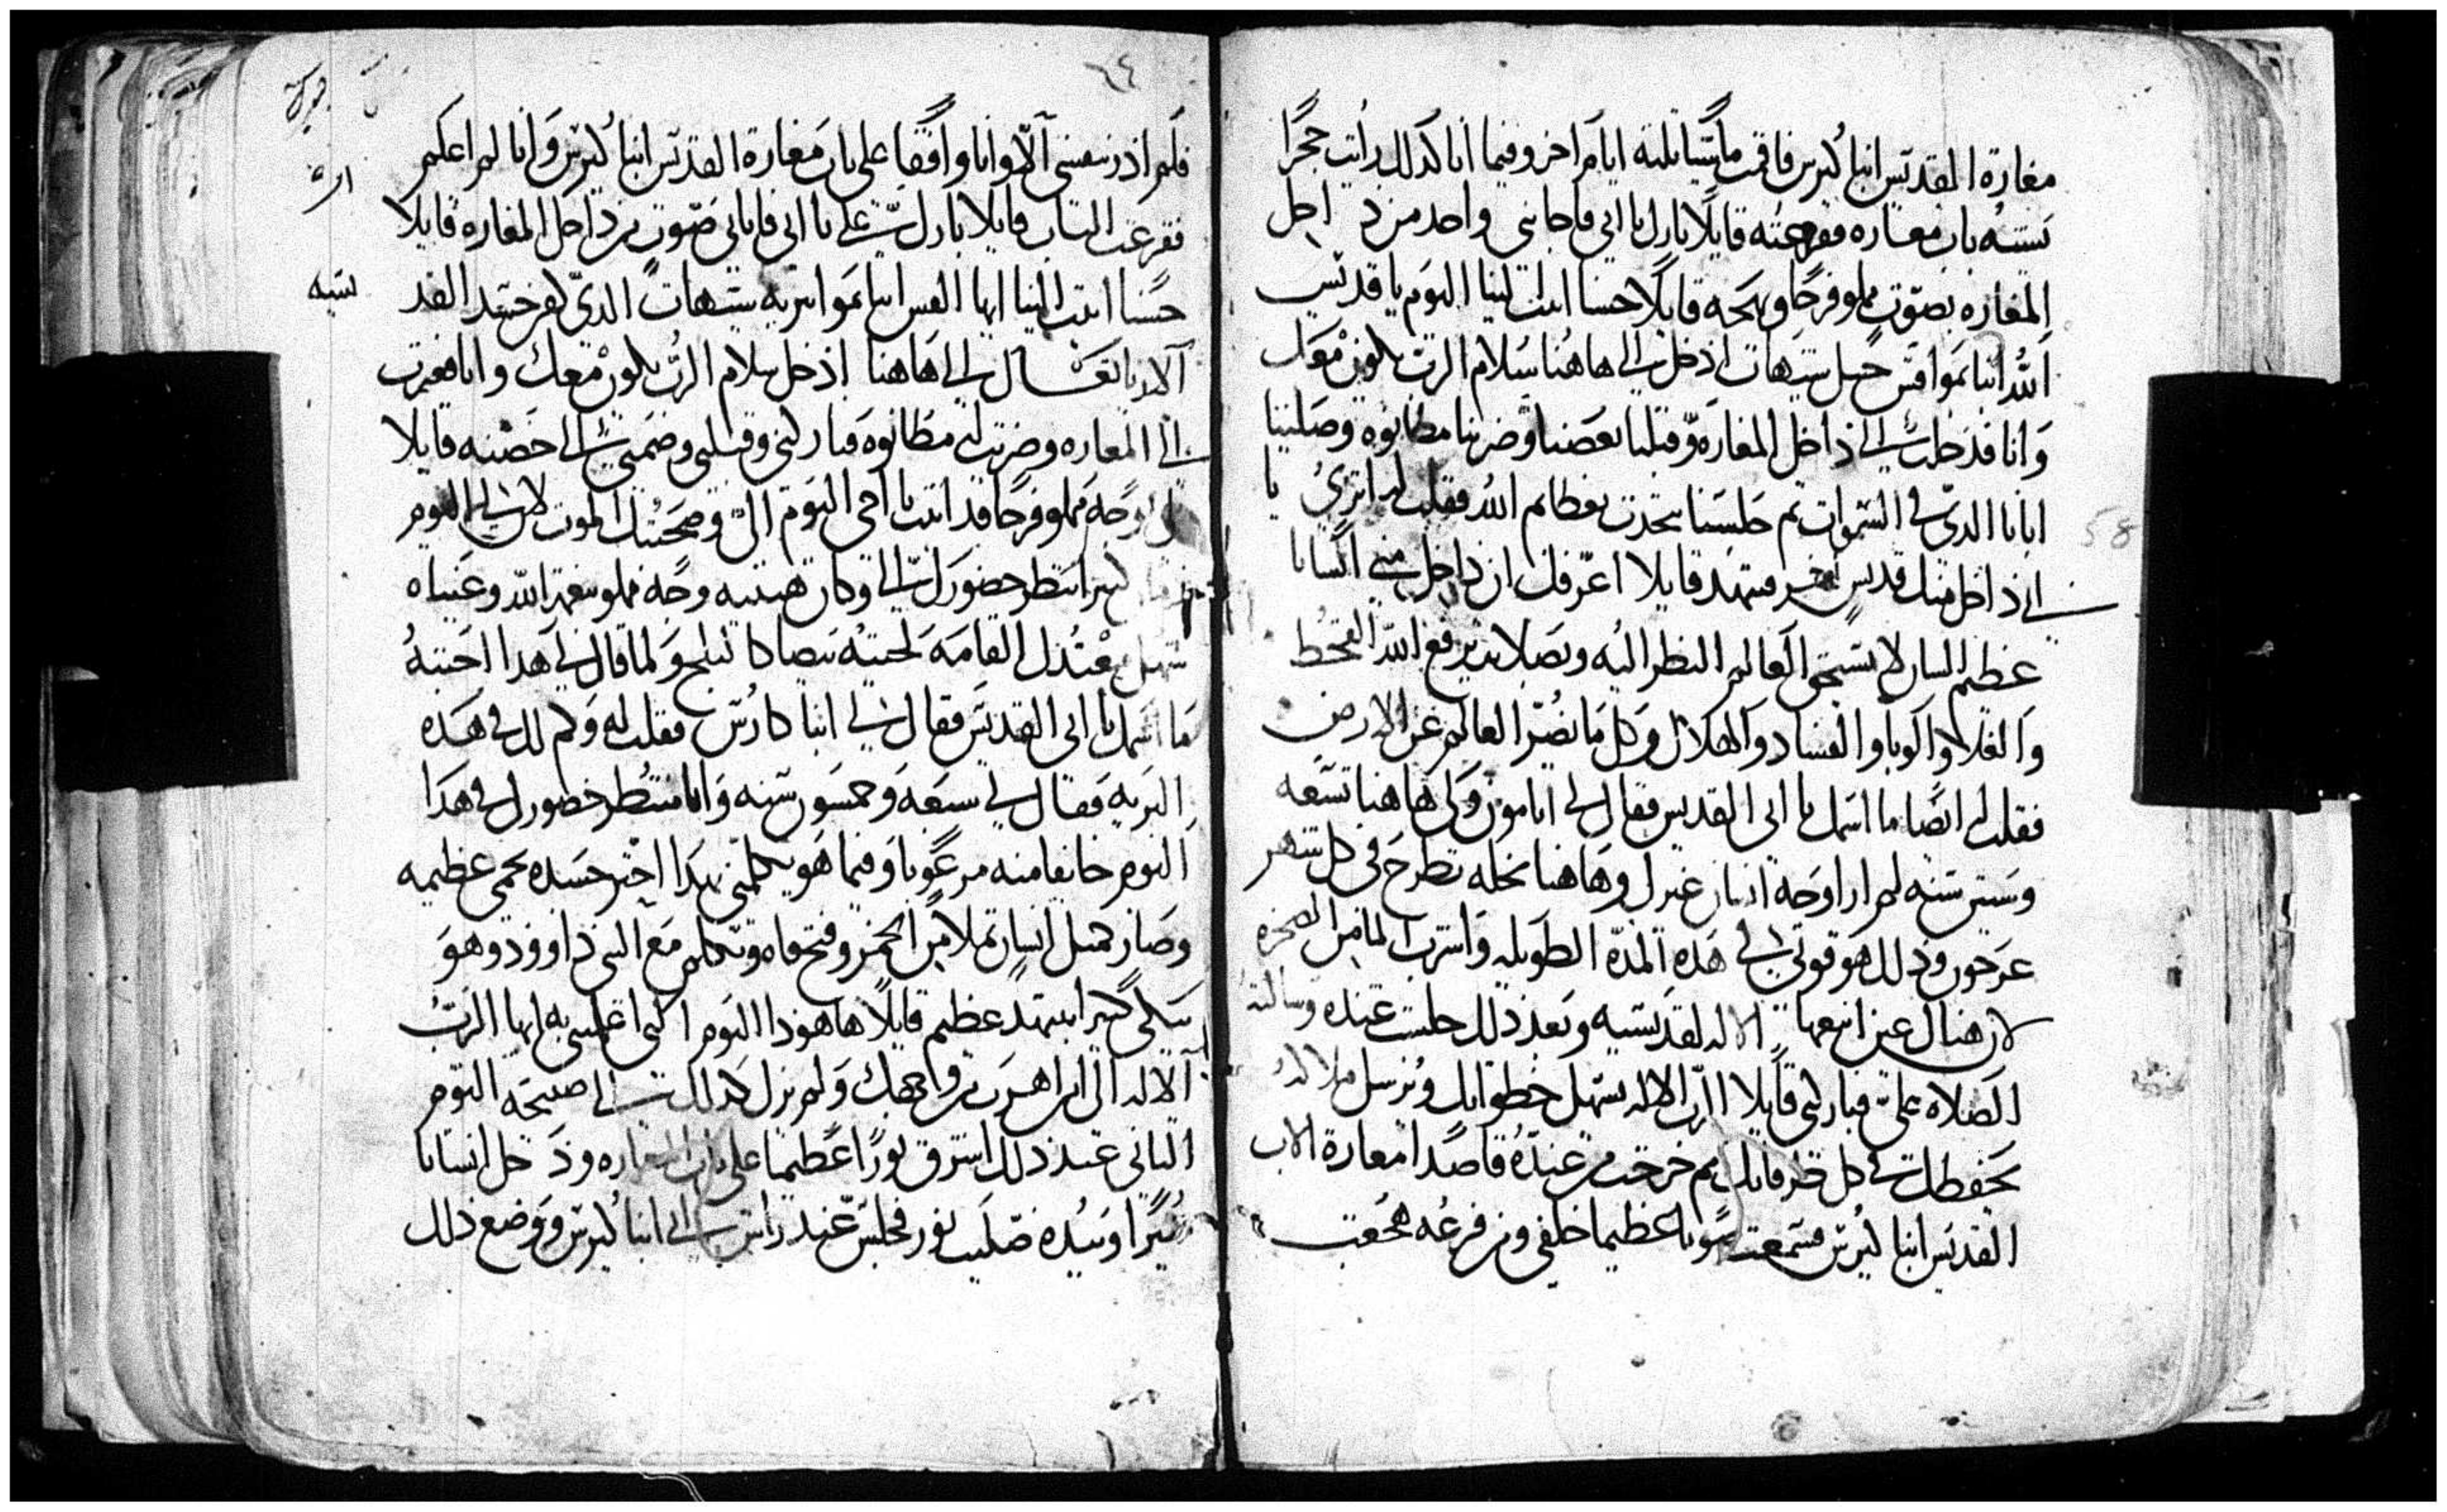 مغارة القديس انبا كيرس فاقمت ماشيا ثلثه ايام اخر وفيما انا كدلك رأيت حجرا
يشبه باب مغاره فقرعته قايلا بارك يا ابي فاجابني واحد من داخل
المغاره بصوت مملو فرحا وبهجه قايلا حسنا اتيت الينا اليوم يا قديس
الله انبا بموا قس جبل شيهات ادخل الي هاهنا سلام الرب يكون معك
وانا فدخلت الي داخل المغاره وقبلنا بعضنا وضربنا مطانوه وصلينا
ابانا الدي في السموات ثم جلسنا نتحدت بعظايم الله فقلت له اترى يا
ابي داخل منك قديس اخر فتنهد قايلا اعرفك ان داخل مني انسانا
عظيم الشان لا يستحق العالم النظر اليه وبصلاته يرفع الله القحط
والغلا والوبا والفساد والهلاك وكل ما يضر العالم عن الارض
فقلت له ايضا ما اسمك يا ابي القديس فقال لي انا مون ولي هاهنا تسعه
وستين سنه لم ار وجه انسان غيرك وهاهنا نخله تطرح في كل شهر
عرجون ودلك هو قوتي لي هده المدة الطويله واشرب الما من الصخره
لان هناك عين انبعها الاله لقديسيه وبعد دلك جلست عنده وسالته
الصلاه علي فباركني قايلا الرب الاله يسهل خطواتك ويرسل ملاكه
يحفظك في كل طرقاتك ثم خرجت من عنده قاصدا مغارة الاب
القديس انبا كيرس فسمعت صوتا عظيما خلفي ومن فزعه خفت
٦٤
فلم ادر بنفسي الا وانا واقفا على باب مغارة القديس انبا كيرس وانا لم اعلم
فقرعت الباب قايلا بارك علي يا ابي فاتاني صوت من داخل المغاره قايلا
حسنا اتيت الينا ايها القس انبا بموا ببرية شيهات الدي
الان تعال الي هاهنا ادخل سلام الرب يكون معك وانا فعبرت
الي المغاره وضربت له مطانوه فباركني وقبلني وضمني الي حضنه قايلا
لي بوجه مملو فرحا قد اتيت يا اخي اليوم الي وصحبتك الموت لان لي اليوم
كتير انتظر حضورك الي وكان هيبته وجه مملو بنعمة الله وعيناه
معتدل القامه لحيته بيضا كالتلج ولما قال لي هدا اجبته
ما اسمك يا ابي القديس فقال لي انبا كارس فقلت له وكم لك في هده
البريه فقال لي سبعه وخمسون سنه وانا منتظر حضورك في هدا
اليوم خايفا منه مرعوبا وفيما هو يكلمني بهدا اخد جسده حمى عظيمه
وصار كمثل انسان تملا من الخمر وفتح فاه وتكلم مع النبي داوود وهو
يبكي كتيرا بتنهد عظيم قايلا هاهو دا اليوم الدي اعلمتني به ايها الرب
الاله الي اين اهرب من وجهك ولم يزل كدلك الي صبيحة اليوم
التاني عند دلك اشرق نورا عظيما على باب المغاره ودخل انسانا
نيرا وبيده صليب نور فجلس عند راس انبا كيرس ووضع دلك
58